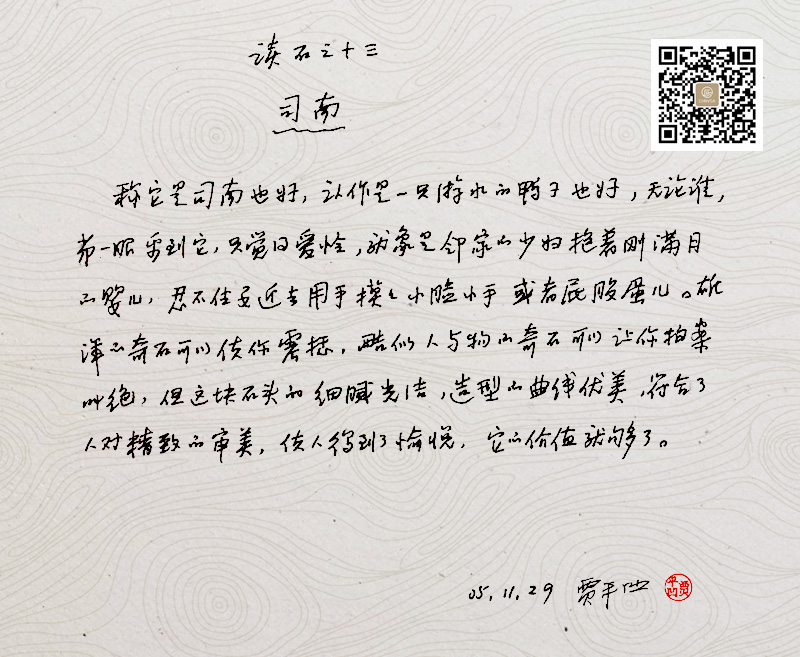 读石之十三
司南
称它是司南也好，认作是一只游水的鸭子也好，无论谁，
第一眼看到它，只觉得爱怜，就象是邻家的少妇抱着刚满月
的婴儿，忍不住要近去用手摸摸小脸小手或者屁股蛋儿。雄
浑的奇石可以使你震撼，酷似人与物的奇石可以让你拍案
叫绝，但这块石头的细腻光洁，造型的曲线优美，符合了
人对精致的审美，使人得到了愉悦，它的价值就够了。
05.11.29 贾平凹
贾平凹